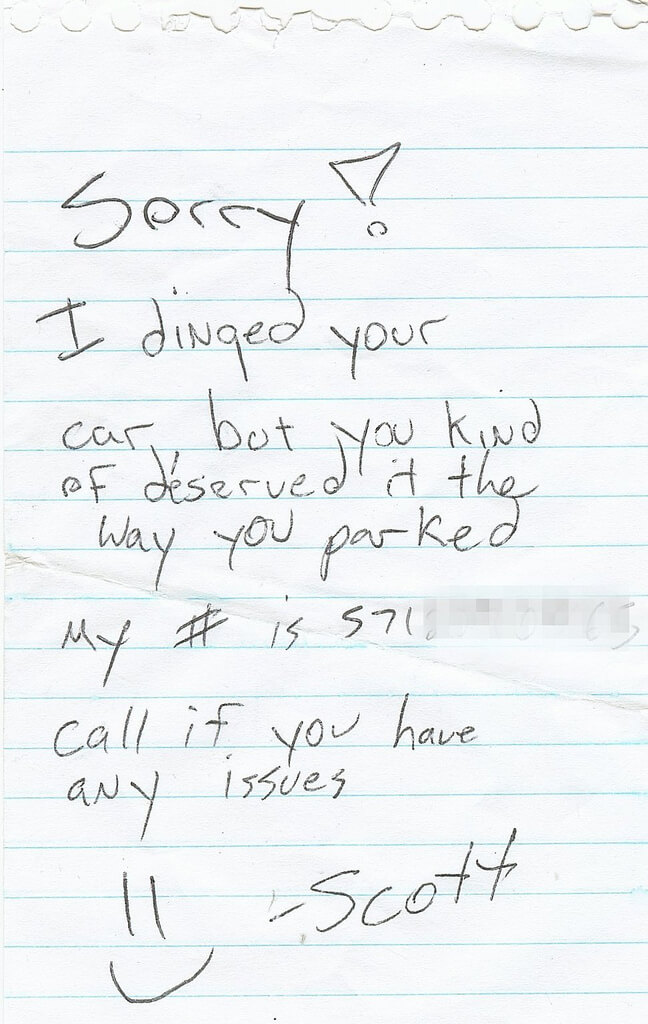 Sorry!
I dinged your
car, but you kind
of deserved it the
way you parked
My # is 571
call if you have
any issues
-Scott